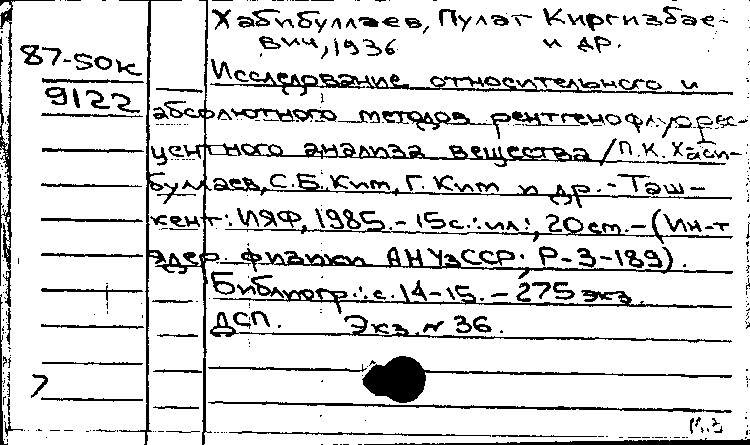 Хабибуллаев, Пулат Киргизбае-
вич, 1936 и др.
87-50к
Исследование относительного и
9122
абсолютного методов рентгенофлуорес-
центного анализа вещества / П.К. Хаби-
буллаев, С.Б. Ким, Г. Ким и др. - Таш-
кент: ИЯФ, 1985. - 15с.: ил.; 20 см. - (Ин-т
ядер. физики АН УзССР; Р-3-189).
Библиогр.: с. 14-15. - 275 экз.
ДСП. Экз. № 36.
7